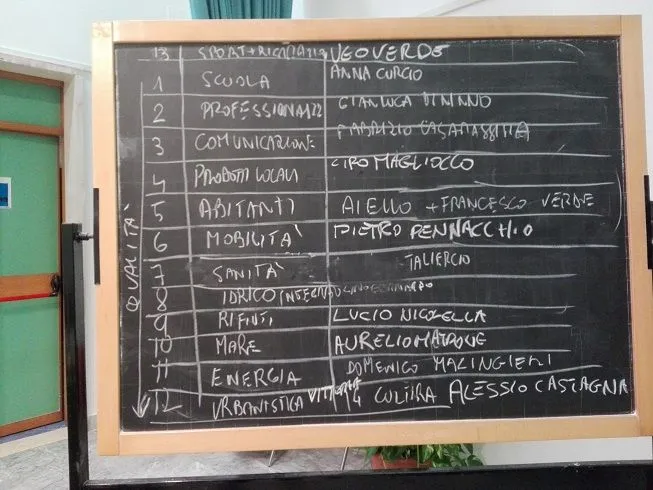 13 SPORT + RICREAZIONE UGO VERDE
1 SCUOLA ANNA CURCIO
2 PROFESSIONALIZZ GIANLUCA DI NINNO
3 COMUNICAZIONE FABRIZIO
4 PRODOTTI LOCALI CIRO MAGLIOCCO
5 ABITANTI AIELLO + FRANCESCO VERDE
6 MOBILITÀ PIETRO PENNACCHIO
7 SANITÀ TALIERCIO
8 IDRICO INTEGRATO
9 RIFIUTI LUCIO NICOLELLA
10 MARE AURELIO MATRONE
11 ENERGIA DOMENICO MAZINGIERI
12 URBANISTICA 14 CULTURA ALESSIO CASTAGNA
QUALITÀ